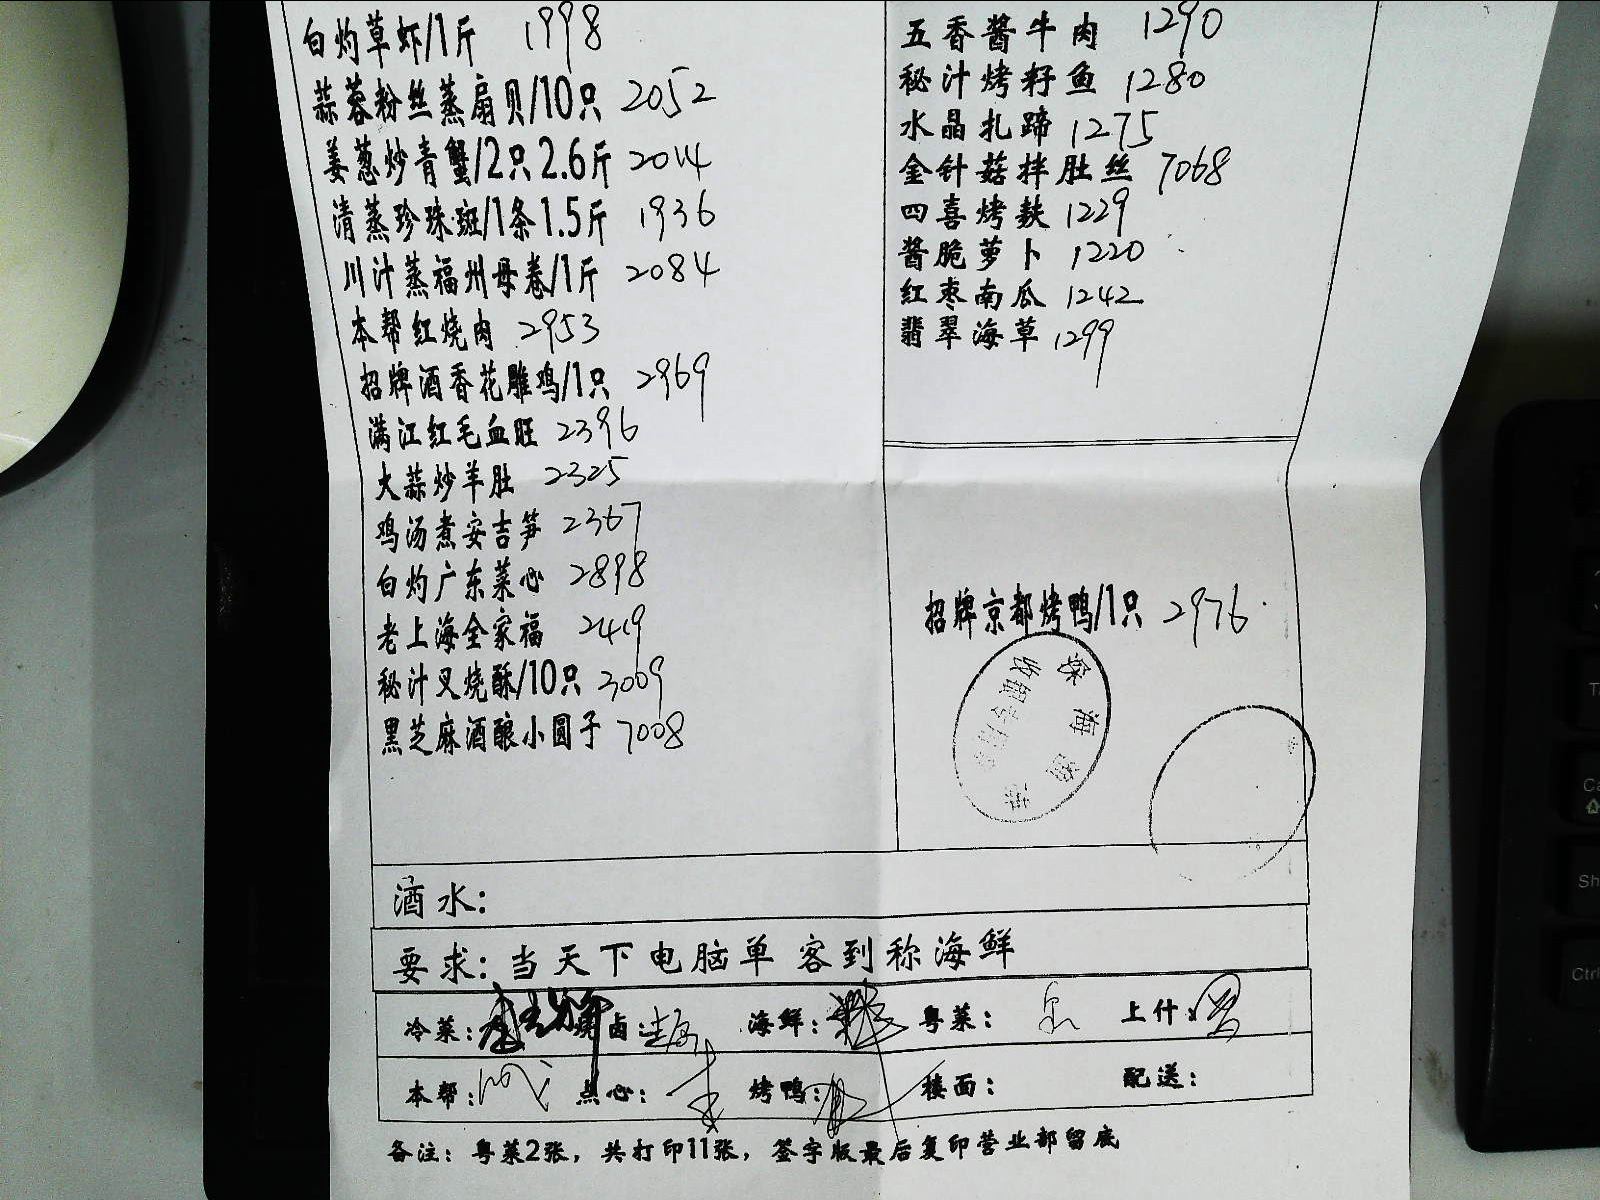 白灼草虾/1斤 1998
蒜蓉粉丝蒸扇贝/10只 2052
姜葱炒青蟹/2只2.6斤 2014
清蒸珍珠斑/1条1.5斤 1936
川汁蒸福州母卷/1斤 2084
本帮红烧肉 2953
招牌酒香花雕鸡/1只 2969
满江红毛血旺 2396
大蒜炒羊肚 2325
鸡汤煮安吉笋 2367
白灼广东菜心 2898
老上海全家福 2419
秘汁叉烧酥/10只 3009
黑芝麻酒酿小圆子 7008
五香酱牛肉 1290
秘汁烤籽鱼 1280
水晶扎蹄 1275
金针菇拌肚丝 7068
四喜烤麸 1229
酱脆萝卜 1220
红枣南瓜 1242
翡翠海草 1299
招牌京都烤鸭/1只 2976
酒水：
要求：当天下电脑单 客到称海鲜
冷菜： 卤： 海鲜： 粤菜： 上什：
本帮： 点心： 烤鸭： 楼面： 配送：
备注：粤菜2张，共打印11张，签字版最后复印营业部留底
Sh
Ctrl